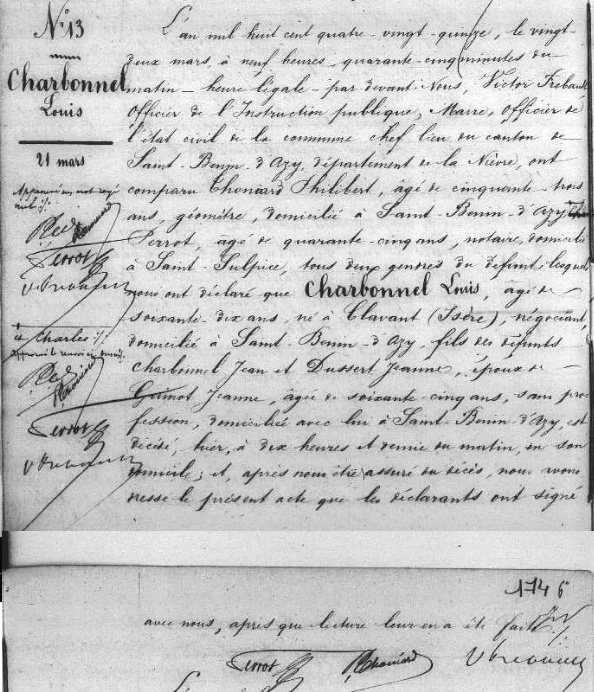 N° 13
Charbonnel
Louis
21 mars
L'an mil huit cent quatre-vingt-quinze, le vingt-
deux mars, à neuf heures, quarante-cinq minutes du
matin - heure légale - par devant Nous, Victor
Officier de l'Instruction publique, Maire, officier de
l'état civil de la commune chef lieu du canton de
Saint-Benin-d'Azy, département de la Nièvre, ont
comparu Thouard Philibert, âgé de cinquante-trois
ans, géomètre, domicilié à Saint-Benin-d'Azy
Perrot, âgé de quarante-cinq ans, notaire, domicilié
à Saint-Sulpice, tous deux gendres du défunt; lesquels
nous ont déclaré que Charbonnel Louis, âgé de
soixante-dix ans, né à Clavant (Isère), négociant,
domicilié à Saint-Benin-d'Azy, fils des défunts
Charbonnel Jean et Dussert Jeanne, époux de
Guinot Jeanne, âgée de soixante-cinq ans, sans pro
fession, domiciliée avec lui à Saint-Benin-d'Azy, est
décédé, hier, à dix heures et demie du matin, en son
domicile; et, après nous être assuré du décès, nous avons
dressé le présent acte que les déclarants ont signé
à Charles
Perrot
Perrot
1746
avec nous, après que lecture leur en a été faite
Perrot Thouard